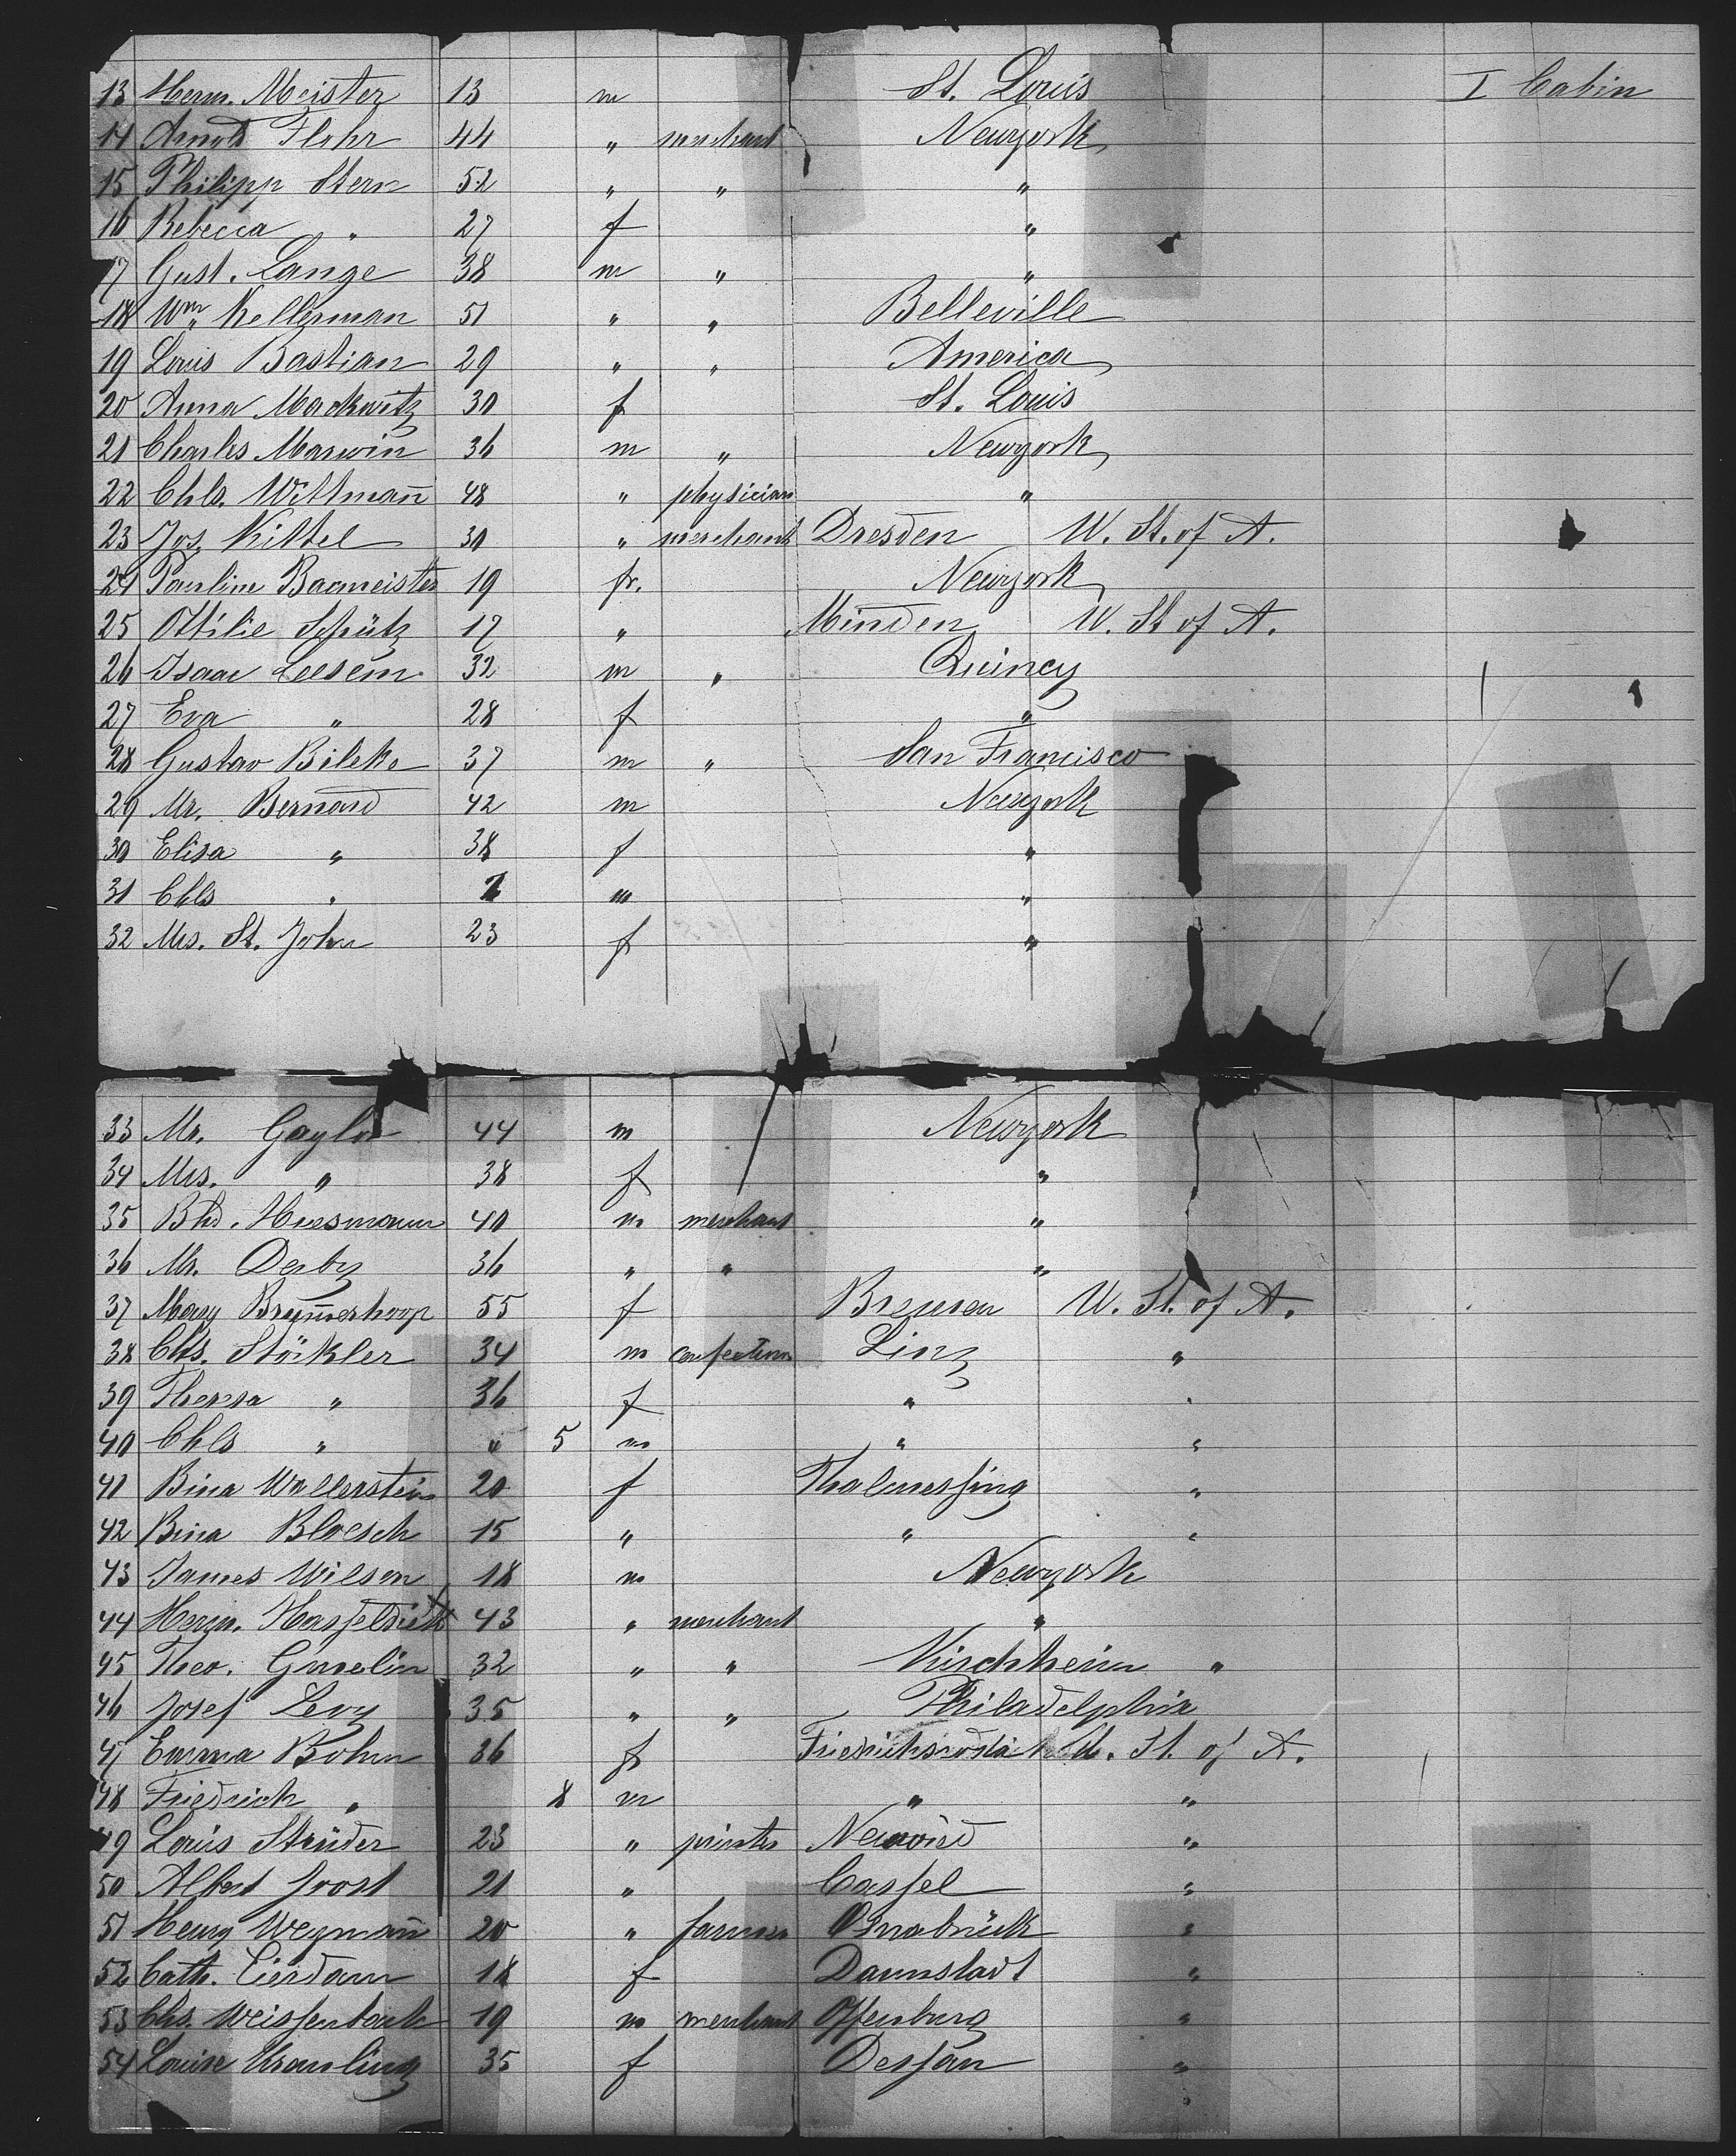 13 Herm. Meister 13 m St. Louis I Cabin
14 Arnold Flohr 44 " merchant Newyork
15 Philipp Stern 52 " " "
16 Rebecca " 27 f "
17 Gust. Lange 38 m " "
18 Wm. Kellerman 51 " " Belleville
19 Louis Bastian 29 " " America
20 Anna Mackwitz 30 f St. Louis
21 Charles Marwin 36 m " Newyork
22 Chls. Wittman̄ 48 " physician "
23 Jos. Kittel 30 " merchant Dresden U. St. of A.
24 Pauline Bacmeister 19 f. Newyork
25 Ottilie Schütz 17 " Minden U. St of A.
26 Isaac Leesem 32 m " Quincy
27 Eva " 28 f "
28 Gustav Bileke 37 m " San Francisco
29 Mr. Bernard 42 m Newyork
30 Elisa " 38 f "
31 Chls " m "
32 Mrs. St. John 23 f "
33 Mr. Gaylor 44 m Newyork
34 Mrs. " 38 f "
35 Bhd. Huesmann 40 m merchant "
36 Mr. Derby 36 " " "
37 Mary Brum̄erhoop 55 f Bremen U. St. of A.
38 Chls. Stöckler 34 m Linz "
39 Theresa " 36 f " "
40 Chls " " 5 m " "
41 Bina Wallerstein 20 f Thalmessing "
42 Bina Bloesch 15 " " "
43 James Wilson 18 m Newyork
44 Herm. 43 " merchant "
45 Theo. Gmelin 32 " " Kirchheim "
46 Josef Levy 35 " " Philadelphia
47 Emma Bohm 36 f Friedrichroda U. St. of A.
48 Friedrich " 8 m " "
49 Louis Strüder 23 " printer Neuwied "
50 Albert Jrost 21 " Cassel "
51 Henry Wegman̄ 20 " farmer Osnabrück "
52 Cath. Cierdam 18 f Darmstadt "
53 Chs. Weissenbach 19 m merchant Offenburg "
54 Louise 35 f Dessau "
"